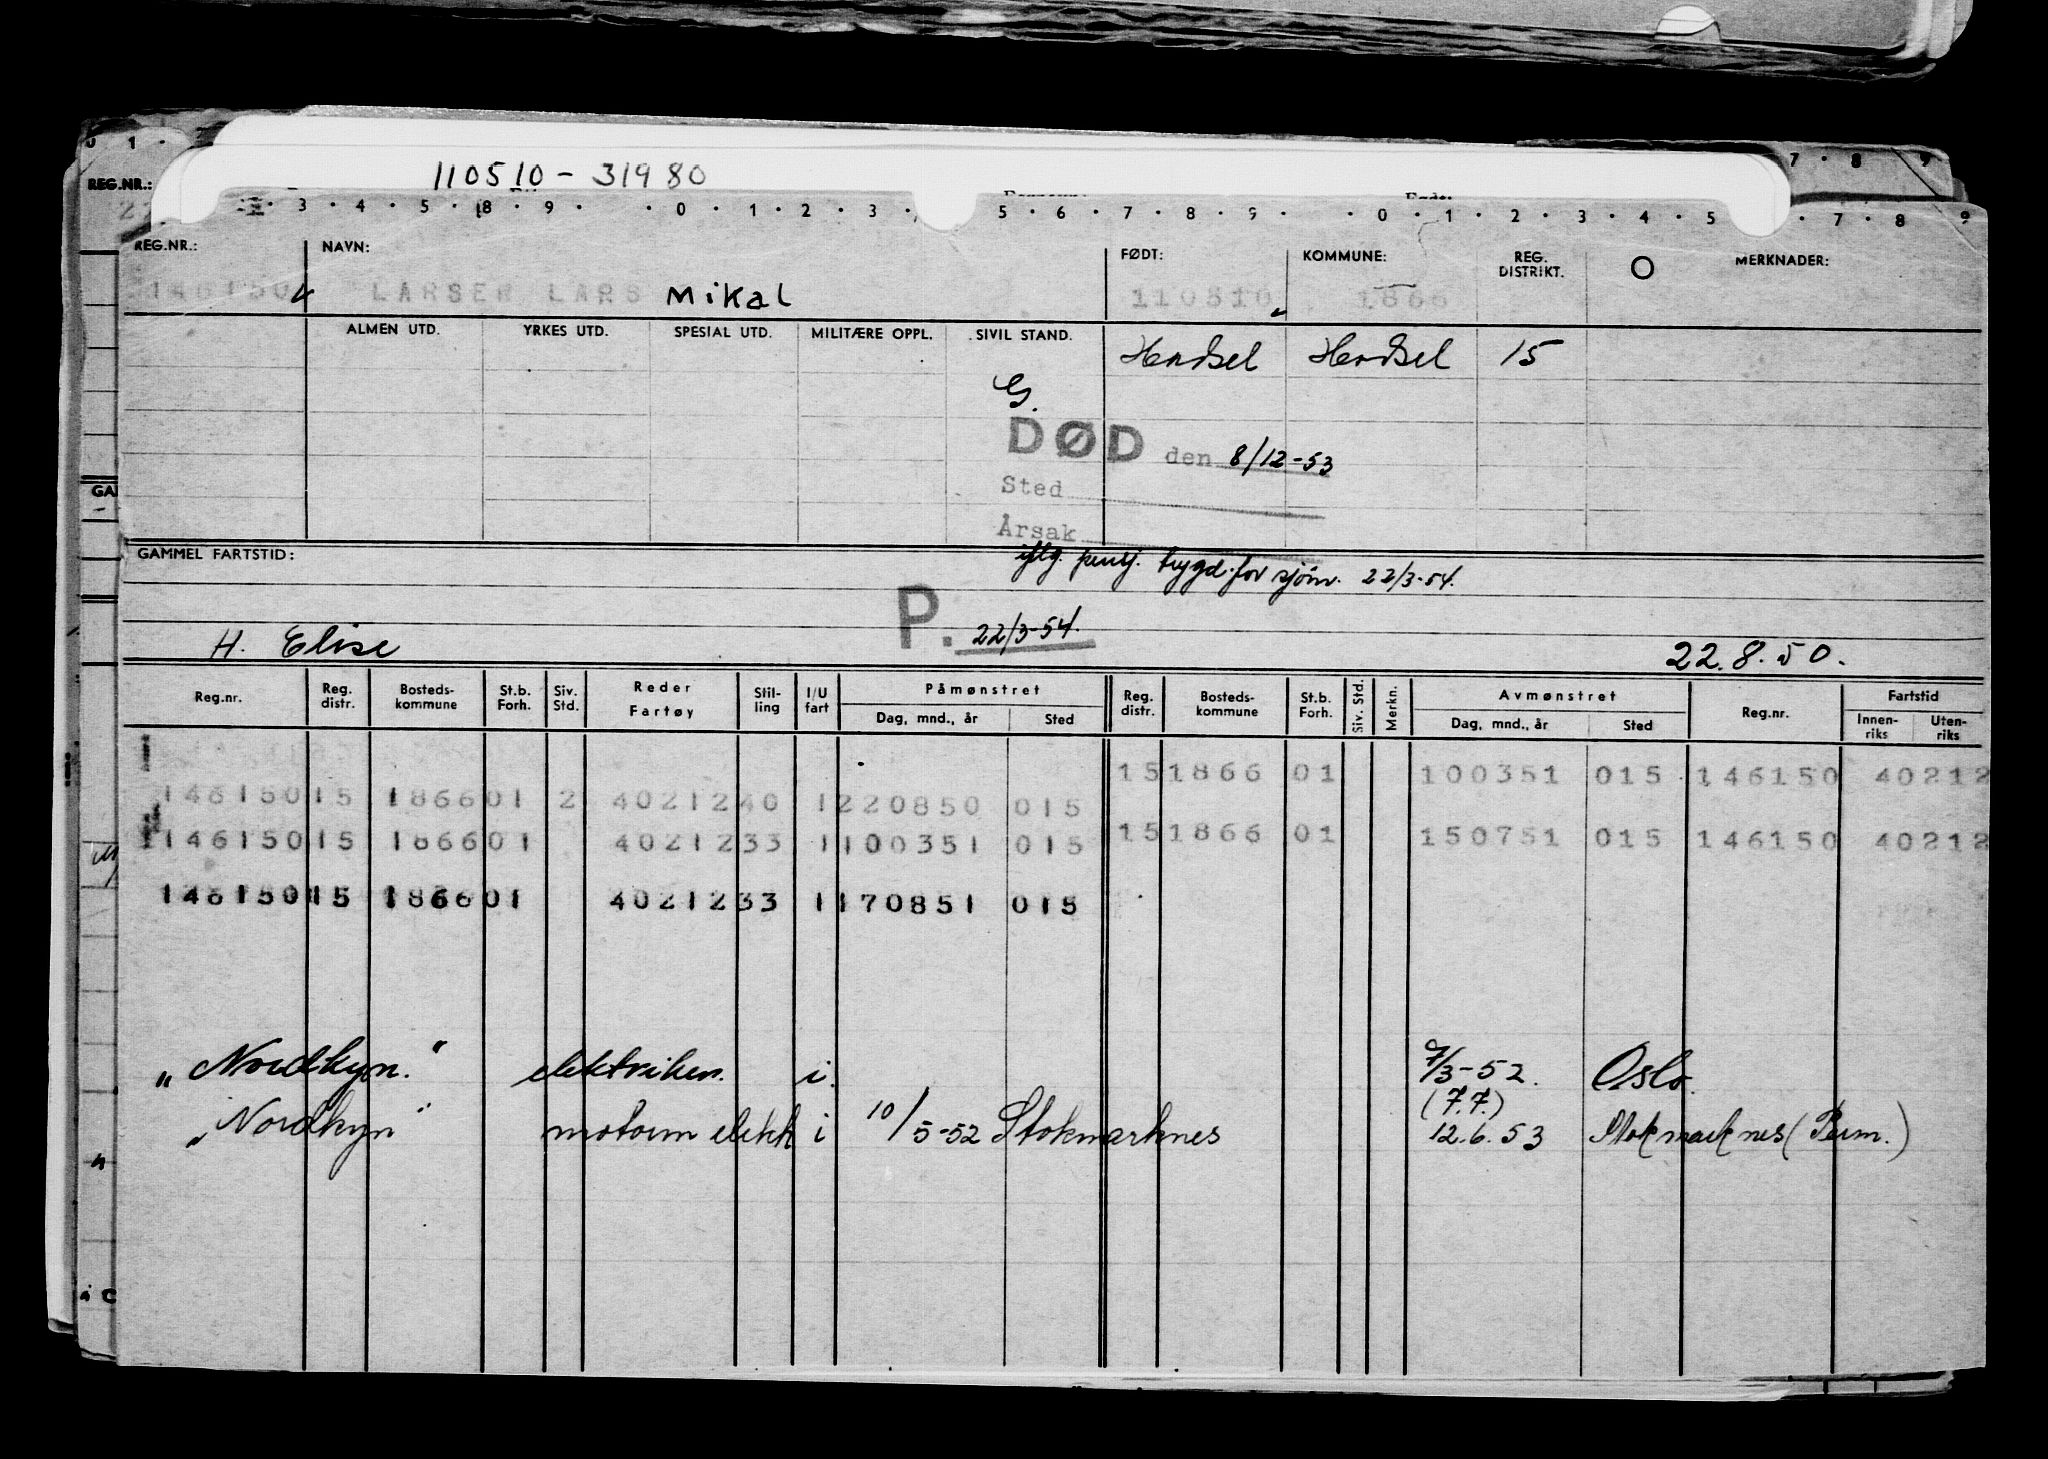 110510-31980
REG.NR.:
3 · 4 · 5 · 8 · 9 · · 0 · 1 · 2 · 3 · 5 · 6 · 7 · 8 · 9 · · 0 · 1 · 2 · 3 · 4 · 5 · 7 · 8 9
REG.NR.: NAVN: FØDT: KOMMUNE: REG. DISTRIKT. MERKNADER:
146150 LARSEN LARS Mikal 110510 1866
ALMEN UTD. YRKES UTD. SPESIAL UTD. MILITÆRE OPPL. SIVIL STAND. Hadsel Hadsel 15
G.
DØD den 8/12-53
Sted
Årsak
GAMMEL FARTSTID:
iflg. pensj. trygd. for sjøm. 22/3-54.
P. 22/3-54.
H. Elise 22.8.50.
Reg.nr. Reg. distr. Bosteds-kommune St.b. Forh. Siv. Std. Reder Fartøy Stil-ling I/U fart Påmønstret Dag, mnd., år Sted Reg. distr. Bosteds-kommune St.b. Forh. Siv. Std. Merkn. Avmønstret Dag, mnd., år Sted Reg.nr. Fartstid Innen-riks Uten-riks
151866 01 100351 015 146150 40212
14615015 186601 2 40212 40 1220850 015
151866 01 150751 015 146150 40212
14615015 186601 4021233 1100351 015
14615015 186601 4021233 1170851 015
"Nordkyn." elektriker. i. 7/3-52. Oslo.
(7.7.)
"Nordkyn" motorm elekk i 10/5-52 Stokmarknes 12.6.53 Stokmarknes (Perm.)